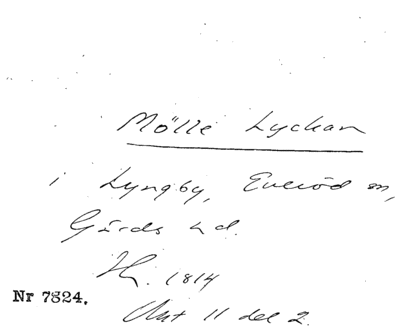 Mölle Lyckan
i Lyngby, Everöd sn,
Gärds hd.
1814
Nr 7824.
Akt 11 del 2.